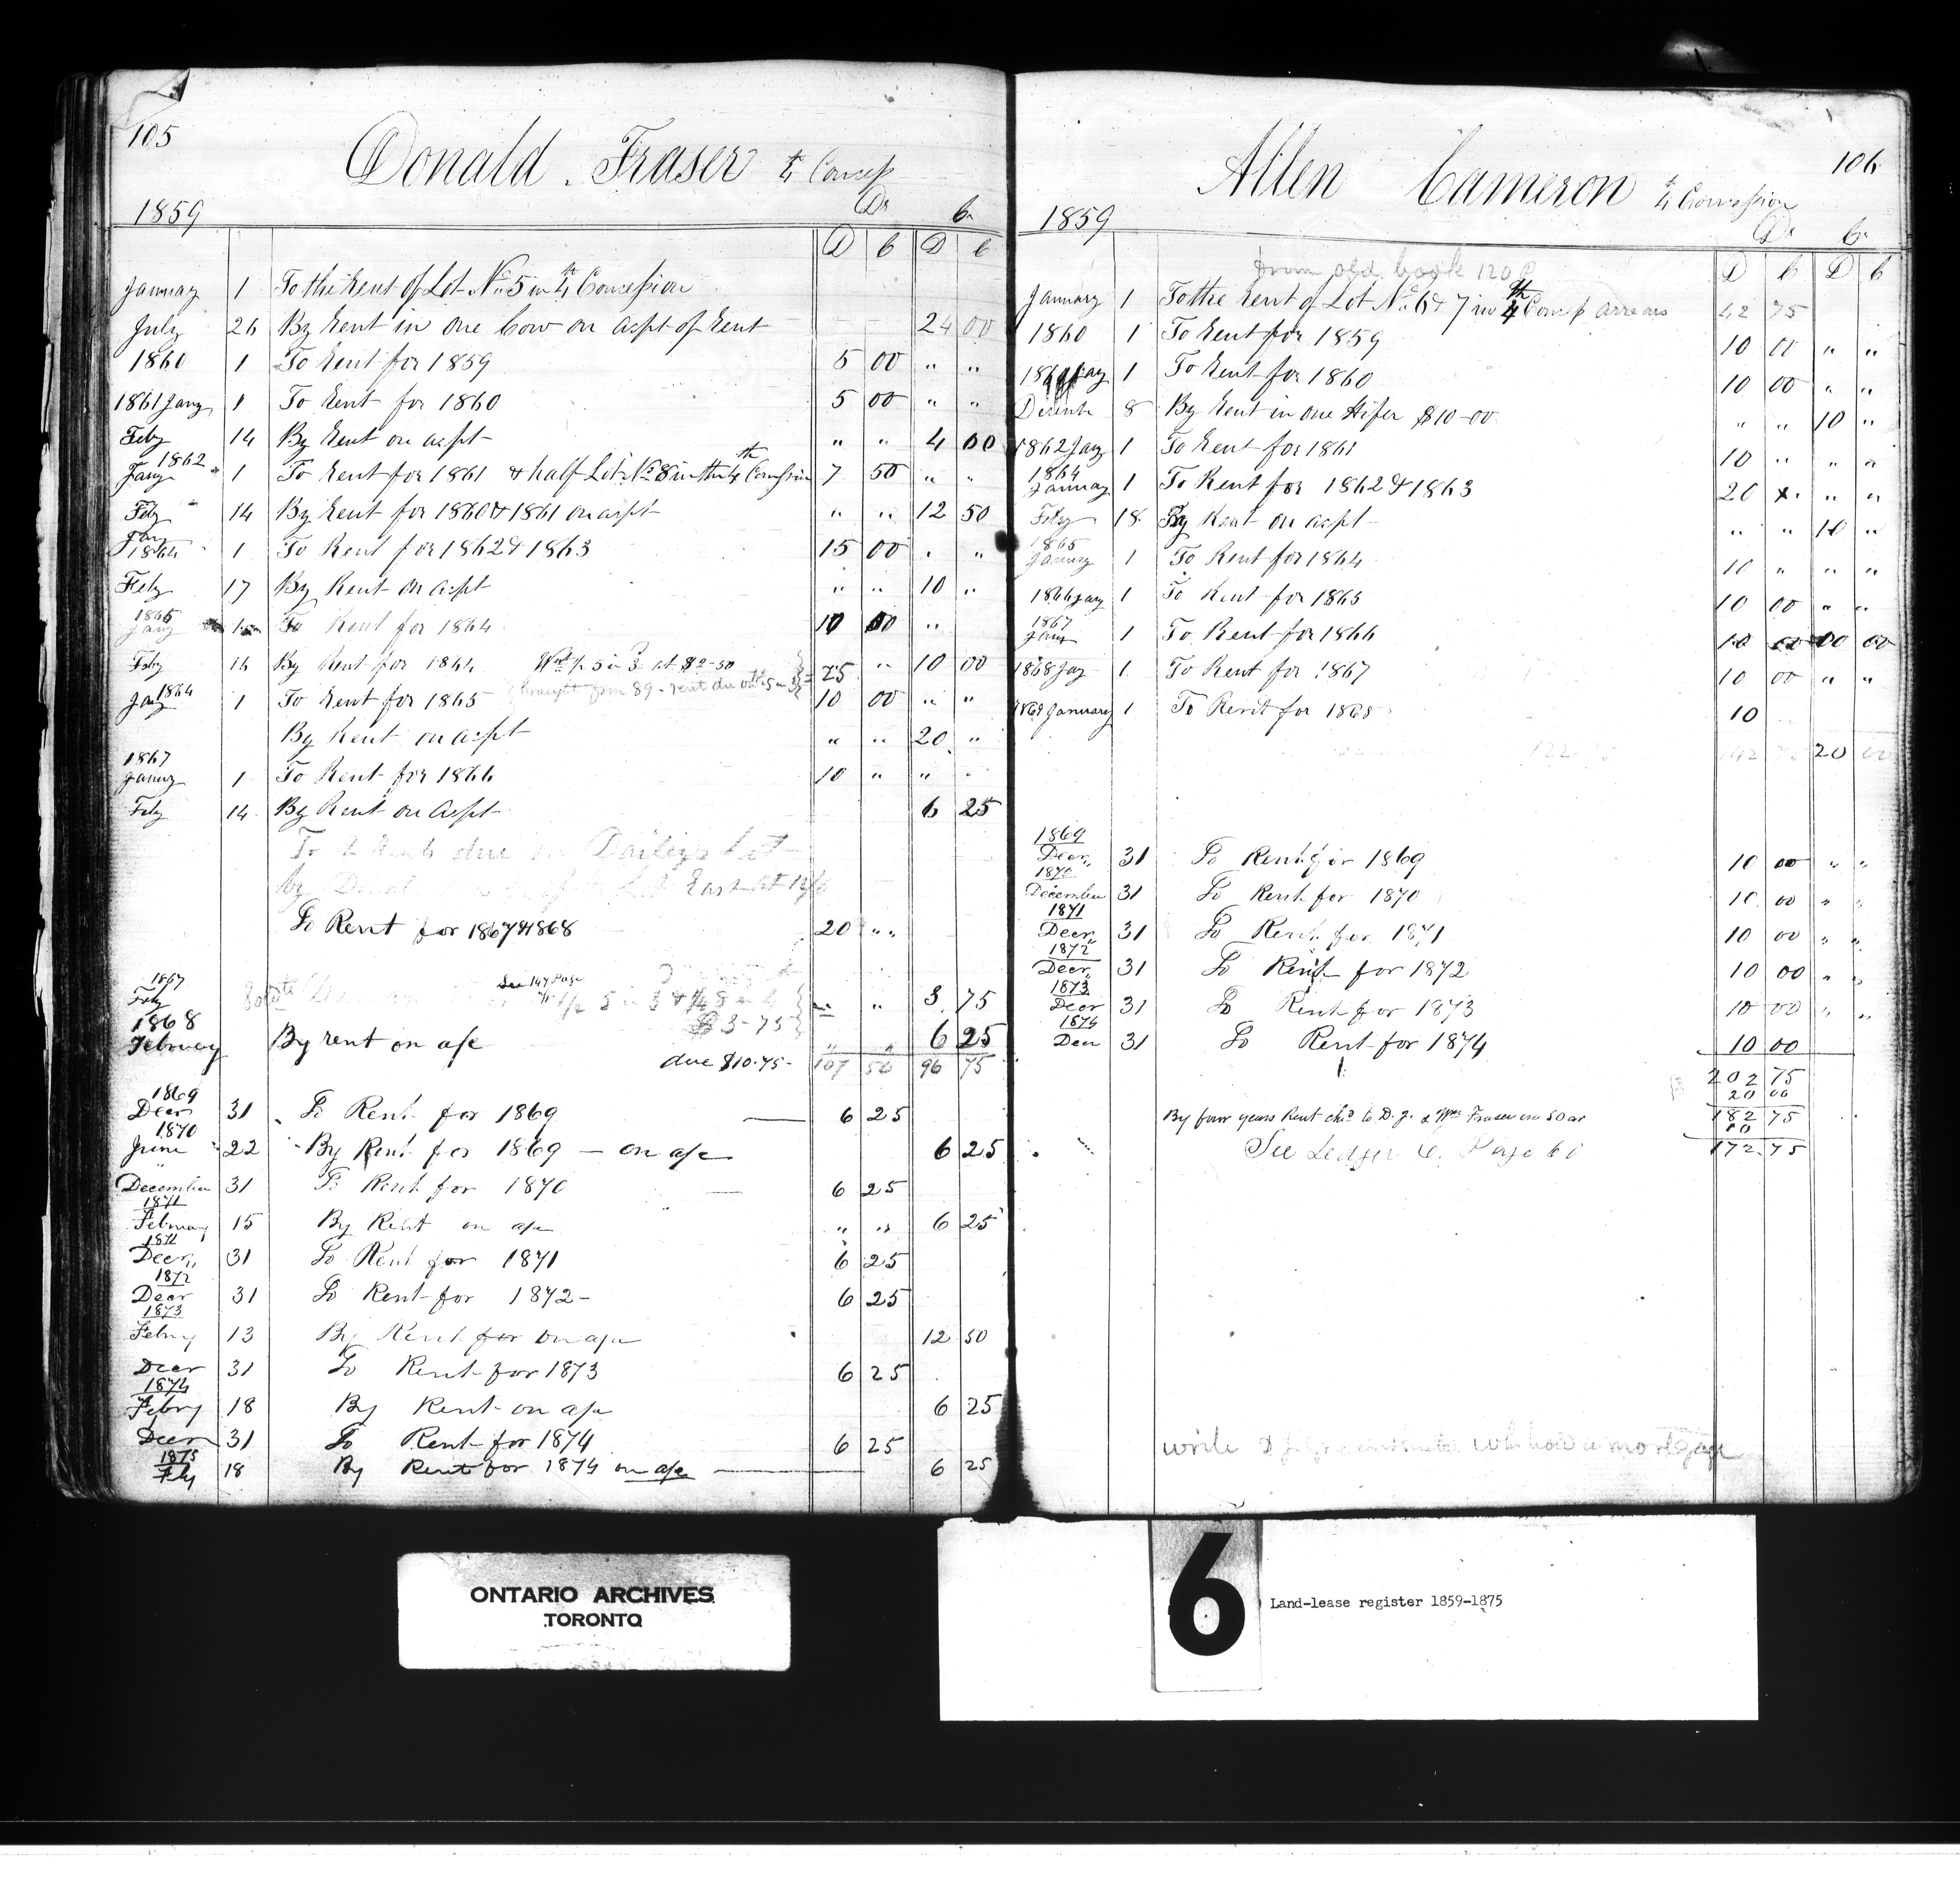 105
Donald Fraser 4 Concess
1859 Dr Cr
D C D C
January 1 To the Rent of Lot No 5 in 4th Concession
July 26 By Rent in one Cow on acspt of Rent 24 00
1860 1 To Rent for 1859 5 00 " "
1861 Jany 1 To Rent for 1860 5 00 " "
Feby 14 By Rent on acspt " " 4 00
1862
Jany 1 To Rent for 1861 & half Lot No 8 in the 4th Concession 7 50 " "
Feby 14 By Rent for 1860 & 1861 on acspt " " 12 50
Jany
1864 1 To Rent for 1862 & 1863 15 00 " "
Feby 17 By Rent on acspt " " 10 "
1865
Jany 1 To Rent for 1864 10 00 "
Feby 14 By Rent for 1864 W 1/2 5 in 3 at $2-50 " 10 00
brought from 89 - rent due on 5 in 3 25
Jany 1 To Rent for 1865 10 00 " "
By Rent on acspt " " 20 "
1867
January 1 To Rent for 1866 10 " " "
Feby 14 By Rent on Acspt 6 25
due Lot
by East at
To Rent for 1867 & 1868 20 " "
1867
Feby See 147 Page 1/2 5 in 3 & 1/4 8 in 4 " " 3 75
$3-75
1868
February By rent on a/c " " 6 25
due $10.75- 107 50 96 75
1869
Decr 31 To Rent for 1869 6 25
1870
June 22 By Rent for 1869 - on a/c 6 25
December 31 To Rent for 1870 6 25
1871
February 15 By Rent on a/c " " 6 25
1871
Decr 31 To Rent for 1871 6 25
1872
Decr 31 To Rent for 1872- 6 25
1873
Febry 13 By Rent for on a/c 12 50
Decr 31 To Rent for 1873 6 25
1874
Febry 18 By Rent on a/c 6 25
Decr 31 To Rent for 1874 6 25
1875
Feby 18 By Rent for 1874 on a/c 6 25
106
Allen Cameron 4 Concession
1859 Dr Cr
from old book 120 P
D C D C
January 1 To the Rent of Lot No 6 & 7 in 4th Concess arrears 42 75
1860 1 To Rent for 1859 10 00 " "
1861 Jany 1 To Rent for 1860 10 00 " "
Decembr 8 By Rent in one Hifer $10-00 " " 10 "
1862 Jany 1 To Rent for 1861 10 " " "
1864
January 1 To Rent for 1862 & 1863 20 " " "
Feby 18 By Rent on acspt " " 10 "
1865
January 1 To Rent for 1864 10 " " "
1866 Jany 1 To Rent for 1865 10 00 " "
1867
Jany 1 To Rent for 1866 10 00 00 00
1868 Jay 1 To Rent for 1867 10 00 " "
1869 January 1 To Rent for 1868 10
122 142 20 00
1869
Decr 31 To Rent for 1869 10 00 " "
1870
December 31 To Rent for 1870 10 00 " "
1871
Decr 31 To Rent for 1871 10 00 " "
1872
Decr 31 To Rent for 1872 10 00 " "
1873
Decr 31 To Rent for 1873 10 00 " "
1874
Decr 31 To Rent for 1874 10 00
202 75
20 00
By four years Rent chd to D. J. & Wm Fraser on 50 ac 182 75
10
See Ledger C. Page 60 172.75
write who hold a mortgage
ONTARIO ARCHIVES
TORONTO
6
Land-lease register 1859-1875